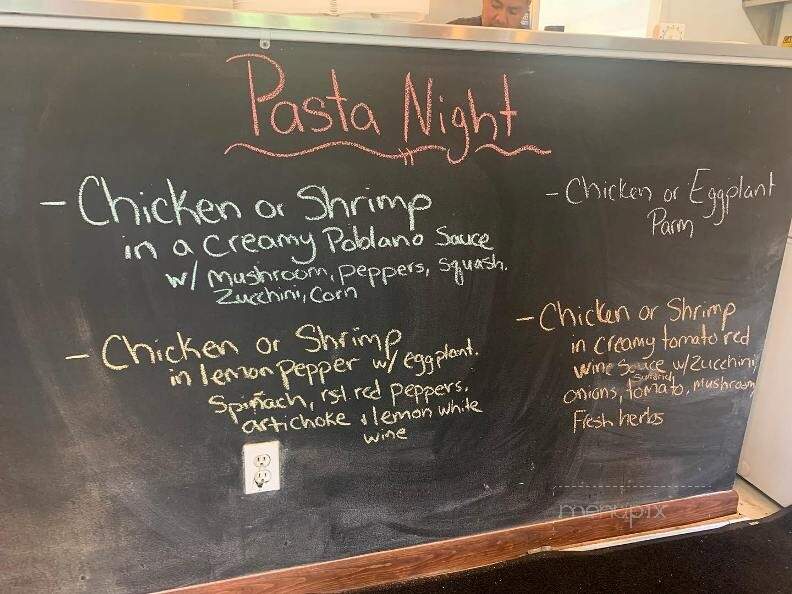 Pasta Night
- Chicken or Shrimp
in a creamy Poblano Sauce
w/ Mushroom, peppers, squash.
Zucchini, Corn
- Chicken or Eggplant
Parm
- Chicken or Shrimp
in lemon pepper w/ eggplant.
Spinach, rst. red peppers.
artichoke & lemon white
wine
- Chicken or Shrimp
in creamy tomato red
wine sauce w/ zucchini,
onions, Sundried tomato, mushroom,
Fresh herbs
menupix